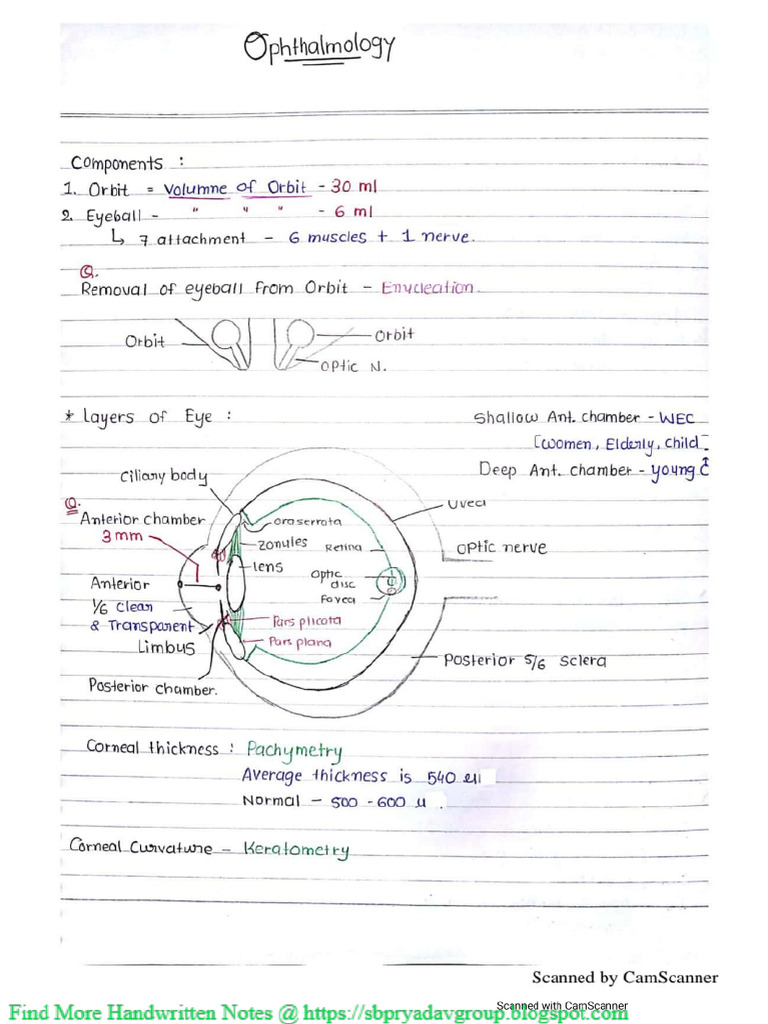 Ophthalmology
Components :
1. Orbit = Volumne of Orbit - 30 ml
2. Eyeball - " " " - 6 ml
↳ 7 attachment - 6 muscles + 1 nerve.
Q.
Removal of eyeball from Orbit - Enucleation.
Orbit
Orbit
Optic N.
* Layers of Eye :
Shallow Ant. chamber - WEC
[women, Elderly, child]
Deep Ant. chamber - young
Ciliary body
Uvea
Q.
Anterior chamber
3 mm
Ora serrata
Zonules
Retina
Optic nerve
lens
Optic
disc
Fovea
Anterior
1/6 Clean
& Transparent
Pars plicata
Pars plana
Limbus
Posterior 5/6 Sclera
Posterior chamber.
Corneal thickness : Pachymetry
Average thickness is 540
Normal - 500 - 600 u.
Corneal Curvature - Keratometry
Scanned by CamScanner
Scanned with CamScanner
Find More Handwritten Notes @ https://sbpryadavgroup.blogspot.com